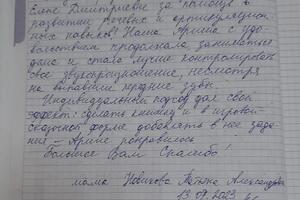 Елене Дмитриевне за помощь в
развитии речевых и артикуляцион-
ных навыков! Наша Арина с удо-
вольствием продолжала заниматься
дома и стала лучше контролировать
своё звукопроизношение, несмотря
на выпавшие передние зубы.
Индивидуальный подход дал свой
эффект: сделать книжку и в игровой
сказочной форме добавлять в неё зада-
ния - Арине понравилось
Большое Вам Спасибо!
мама Новикова Татьяна Александровна
13.09.2023